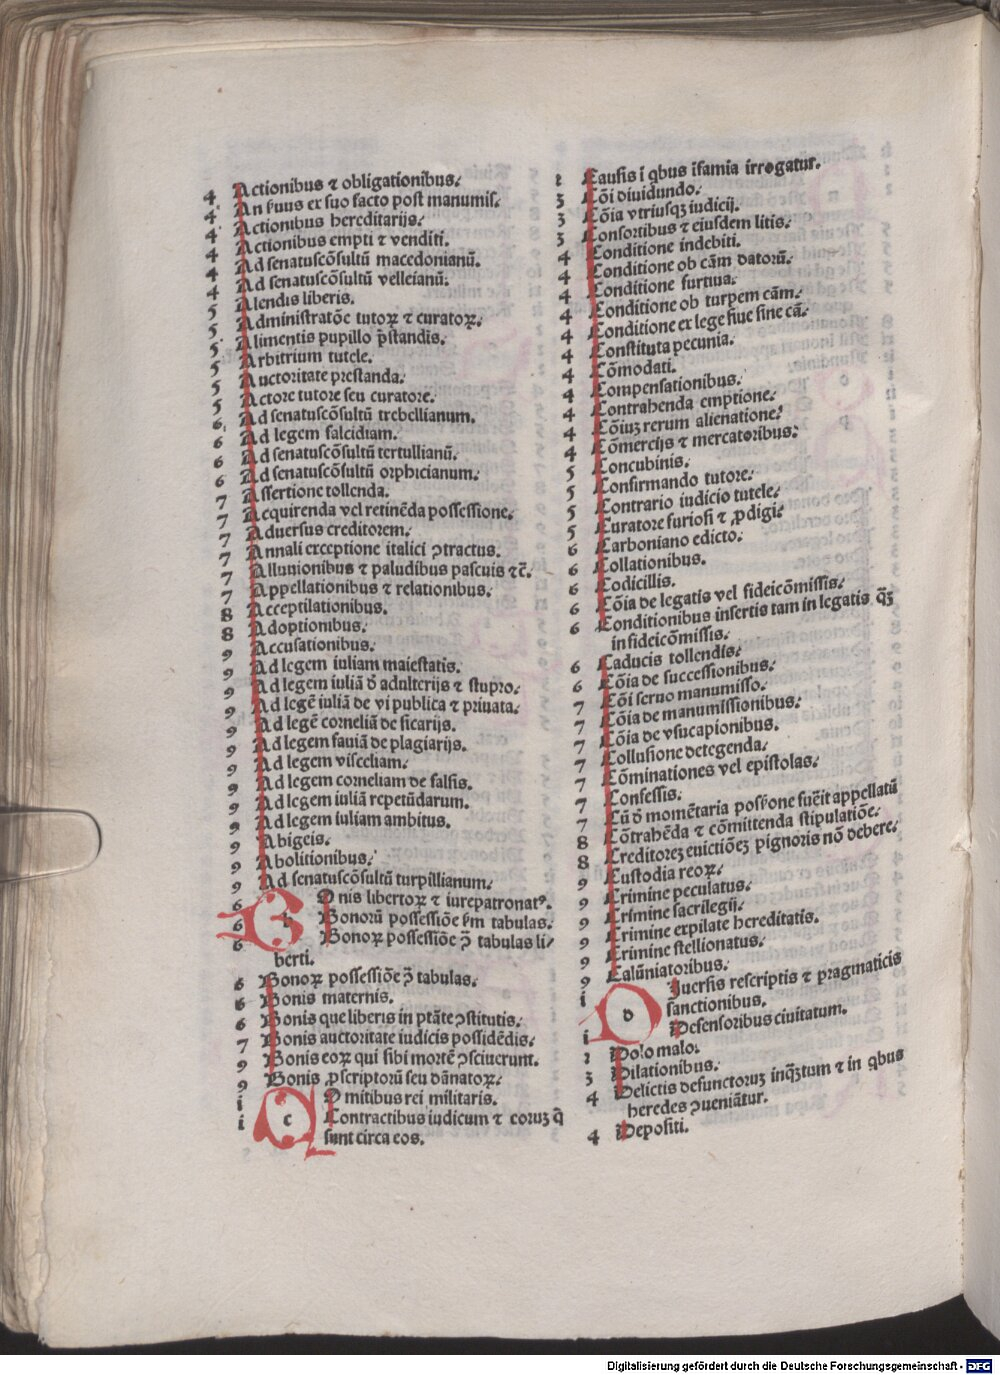 4 Actionibus ⁊ obligationibus.
4 An ẜuus ex suo facto post manumis.
4 Actionibus hereditarijs.
4 Actionibus empti ⁊ venditi.
4 Ad senatuscōsultū macedonianū.
4 Ad senatuscōsultū velleianū.
5 Alendis liberis.
5 Administratōe tutoꝝ ⁊ curatoꝝ.
5 Alimentis pupillo p̄standis.
5 Arbitrium tutele.
5 Auctoritate prestanda.
5 Actore tutore seu curatore.
6 Ad senatuscōsultū trebellianum.
6 Ad legem falcidiam.
6 Ad senatuscōsultū tertullianū.
6 Ad senatuscōsultū orphicianum.
7 Assertione tollenda.
7 Acquirenda vel retinēda possessione.
7 Aduersus creditorem.
7 Annali exceptione italici ꝯtractus.
7 Alluuionibus ⁊ paludibus pascuis ⁊c̄.
7 Appellationibus ⁊ relationibus.
8 Acceptilationibus.
8 Adoptionibus.
9 Accusationibus.
9 Ad legem iuliam maiestatis.
9 Ad legem iuliā d̄ adulterijs ⁊ stupro.
9 Ad legē iuliā de vi publica ⁊ priuata.
9 Ad legē corneliā de sicarijs.
9 Ad legem fauiā de plagiarijs.
9 Ad legem visceliam.
9 Ad legem corneliam de falsis.
9 Ad legem iuliā repetūdarum.
9 Ad legem iuliam ambitus.
9 Abigeis.
9 Abolitionibus.
9 Ad senatuscōsultū turpillianum.
6 B Onis libertoꝝ ⁊ iurepatronatꝰ.
6 Bonorū possessiōe ẜm tabulas.
6 Bonoꝝ possessiōe ꝯ̄ tabulas li/
berti.
6 Bonoꝝ possessiōe ꝯ̄ tabulas.
6 Bonis maternis.
6 Bonis que liberis in ptāte ꝯstitutis.
7 Bonis auctoritate iudicis possidēdis.
9 Bonis eoꝝ qui sibi mortē ꝯsciuerunt.
9 Bonis ꝓscriptorū seu dānatoꝝ.
i C Omitibus rei militaris.
i Contractibus iudicum ⁊ coruꝫ q̄
sunt circa eos.
2 Causis ī qbus īfamia irrogatur.
3 Cōi diuidundo.
3 Cōia vtriusqꝫ iudicij.
3 Consortibus ⁊ eiusdem litis.
4 Conditione indebiti.
4 Conditione ob cām datorū.
4 Conditione furtiua.
4 Conditione ob turpem cām.
4 Conditione ex lege siue sine cā.
4 Constituta pecunia.
4 Cōmodati.
4 Compensationibus.
4 Contrahenda emptione.
4 Cōiuꝫ rerum alienatione.
4 Cōmercijs ⁊ mercatoribus.
5 Concubinis.
5 Confirmando tutore.
5 Contrario iudicio tutele.
5 Curatore furiosi ⁊ ꝓdigi.
6 Carboniano edicto.
6 Collationibus.
6 Codicillis.
6 Cōia de legatis vel fideicōmissis.
6 Conditionibus insertis tam in legatis q̄ꝫ
in fideicōmissis.
6 Caducis tollendis.
6 Cōia de successionibus.
7 Cōi seruo manumisso.
7 Cōia de manumissionibus.
7 Cōia de vsucapionibus.
7 Collusione detegenda.
7 Cōminationes vel epistolas.
7 Confessis.
7 Cū d̄ momētaria posẜone fuēit appellatū
8 Cōtrahēda ⁊ cōmittenda stipulatiōe.
8 Creditoreꝫ euictiōeꝫ pignoris nō debere.
9 Custodia reoꝝ.
9 Crimine peculatus.
9 Crimine sacrilegij.
9 Crimine expilate hereditatis.
9 Crimine stellionatus.
9 Calūniatoribus.
i D Iuersis rescriptis ⁊ pragmaticis
sanctionibus.
i Defensoribus ciuitatum.
2 Dolo malo.
3 Dilationibus.
4 Delictis defunctoruꝫ inqꝫtum ⁊ in qbus
heredes ꝯueniātur.
4 Depositi.
Digitalisierung gefördert durch die Deutsche Forschungsgemeinschaft - DFG